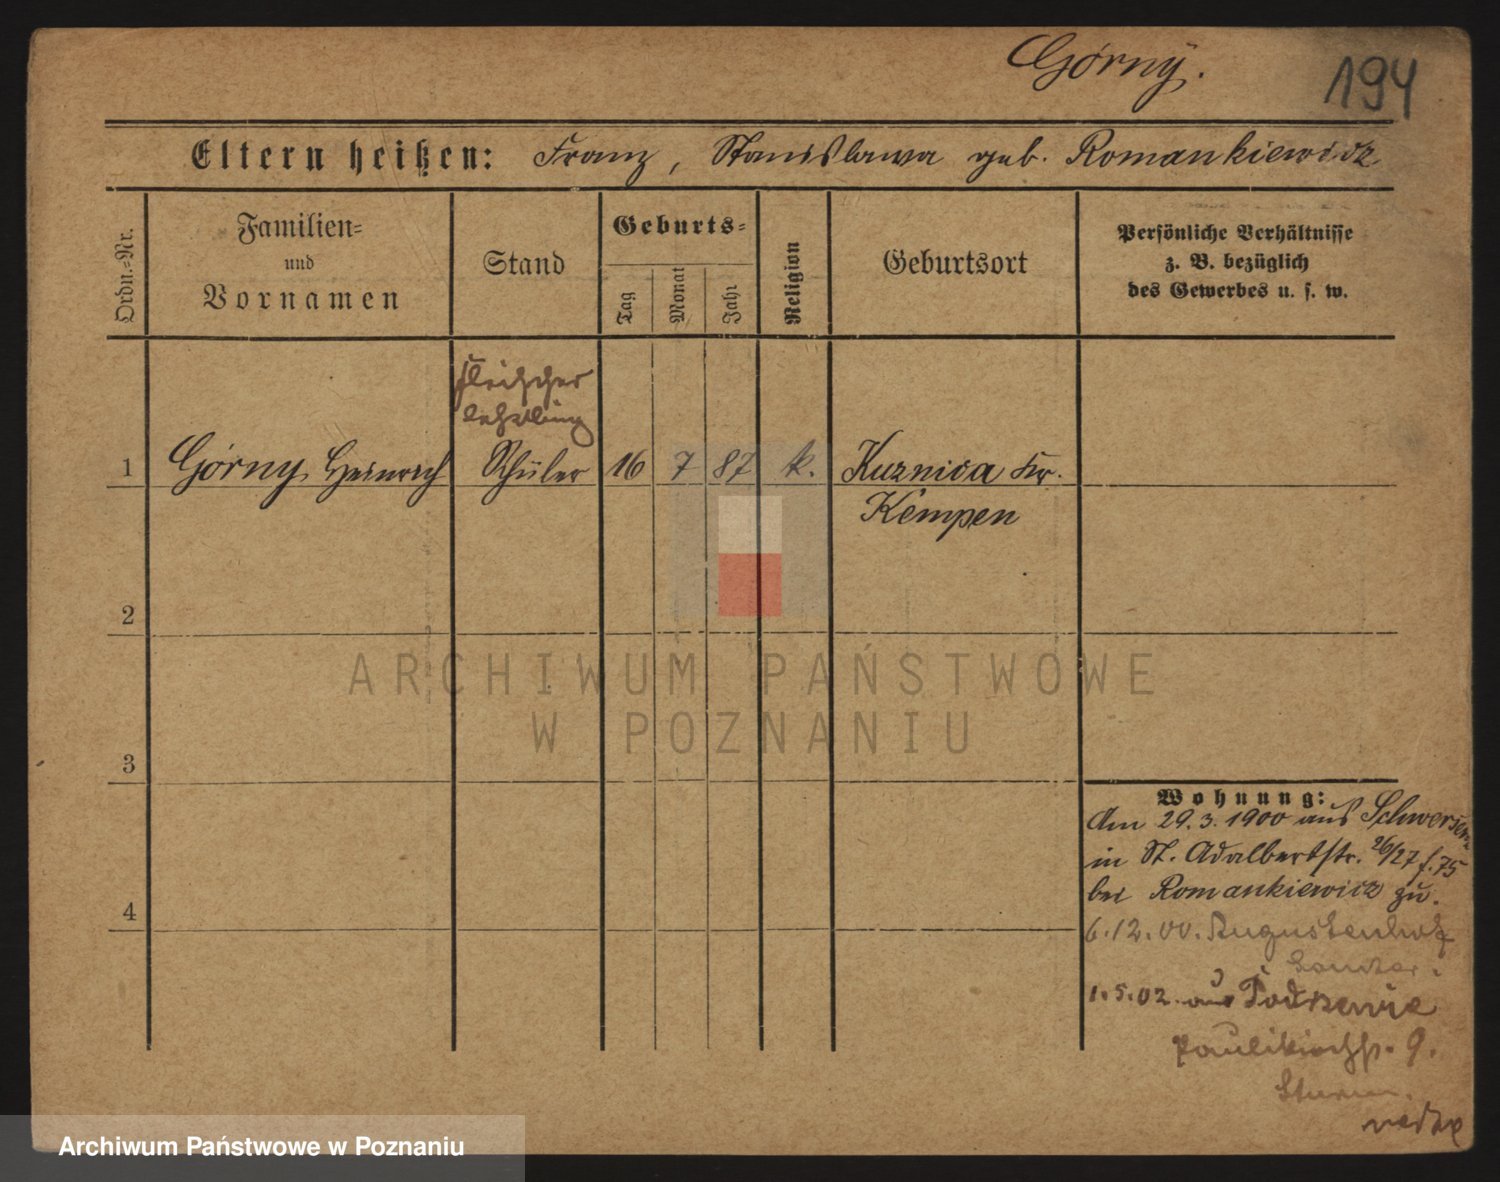 Górny.
194
Eltern heißen: Franz, Stanislawa geb. Romankiewicz
Ordn.-Nr.
Familien-
und
Vornamen
Stand
Geburts-
Tag
Monat
Jahr
Religion
Geburtsort
Persönliche Verhältnisse
z. B. bezüglich
des Gewerbes u. s. w.
Fleischer
lehrling
1 Górny, Heinrich Schüler 16 7 87 k. Kuznica Kr.
Kempen
2
ARCHIWUM PAŃSTWOWE
W POZNANIU
3
4
Wohnung:
Am 29.3.1900 aus Schwersenz
in St. Adalbertstr. 26/27 f. 75
bei Romankiewicz zu.
6.12.00.
1.5.02. aus
Paulikirchst. 9.
Sturm.
Archiwum Państwowe w Poznaniu